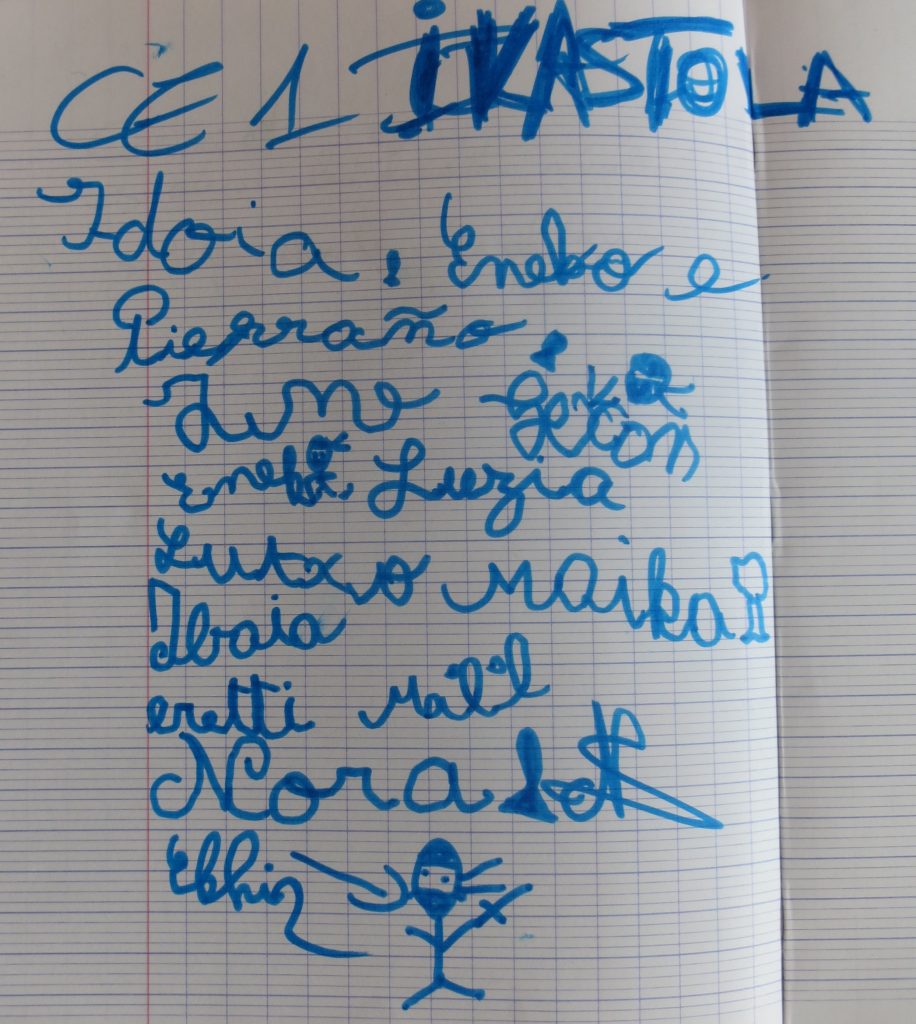 CE 1 IKASTOLA
Idoia, Eneko e
Pierraño,
June
Eneko, Luzia
Lutxo Maika
Ibaia
eretti Maïl
Nora
Ekhin